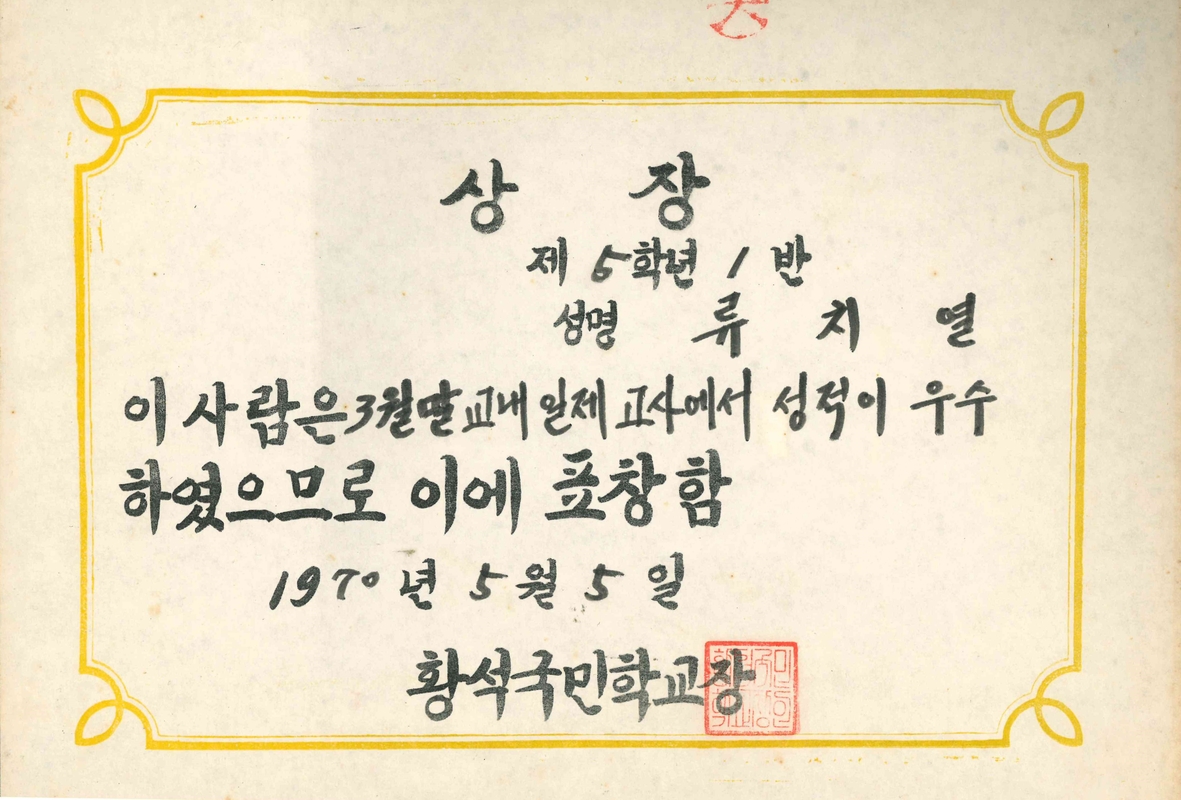 상 장
제 5학년 1 반
성명 류 치 열
이 사람은 3월말 교내 일제 고사에서 성적이 우수
하였으므로 이에 표창함
1970년 5월 5일
황석국민학교장